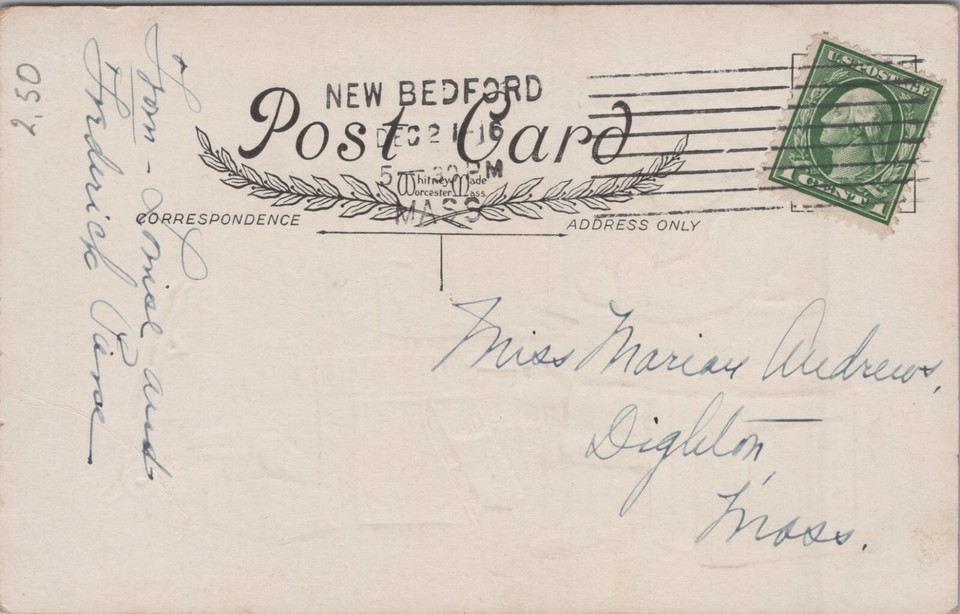 2.50
From - Louise and
Frederick Paine
NEW BEDFORD
DEC 21-16
5-30PM
MASS
Post Card
Whitney Made
Worcester Mass
CORRESPONDENCE
ADDRESS ONLY
U.S. POSTAGE
1 CENT 1
Miss Marian Andrews,
Dighton,
Mass.